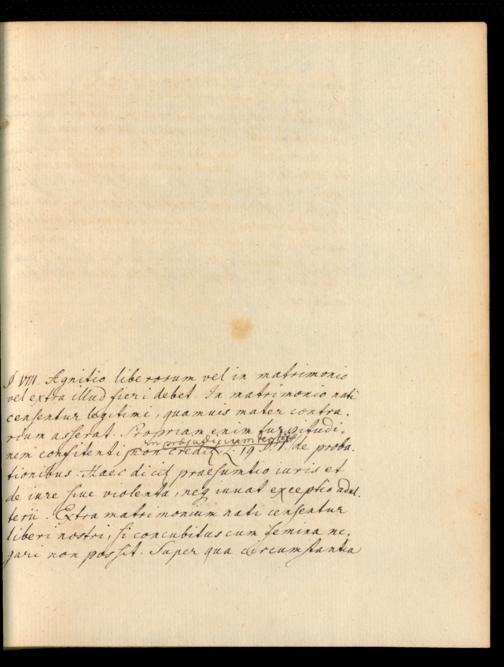 § VIII. Agnitio liberorum vel in matrimonio
vel extra illud fieri debet. In matrimonio nati
censentur legitimi, quamuis mater contra-
rium asserat. Propriam enim turpitudi-
nem confitenti non creditur L. 19 de proba-
tionibus. Haec dicit praesumtio iuris et
de iure siue violenta, neq iuuat exceptio adul-
terii. Extra matrimonium nati censentur
liberi nostri, si concubitus cum femina ne-
gari non possit. Super qua circumstantia